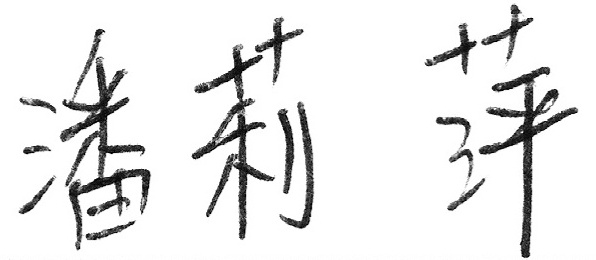 潘莉萍